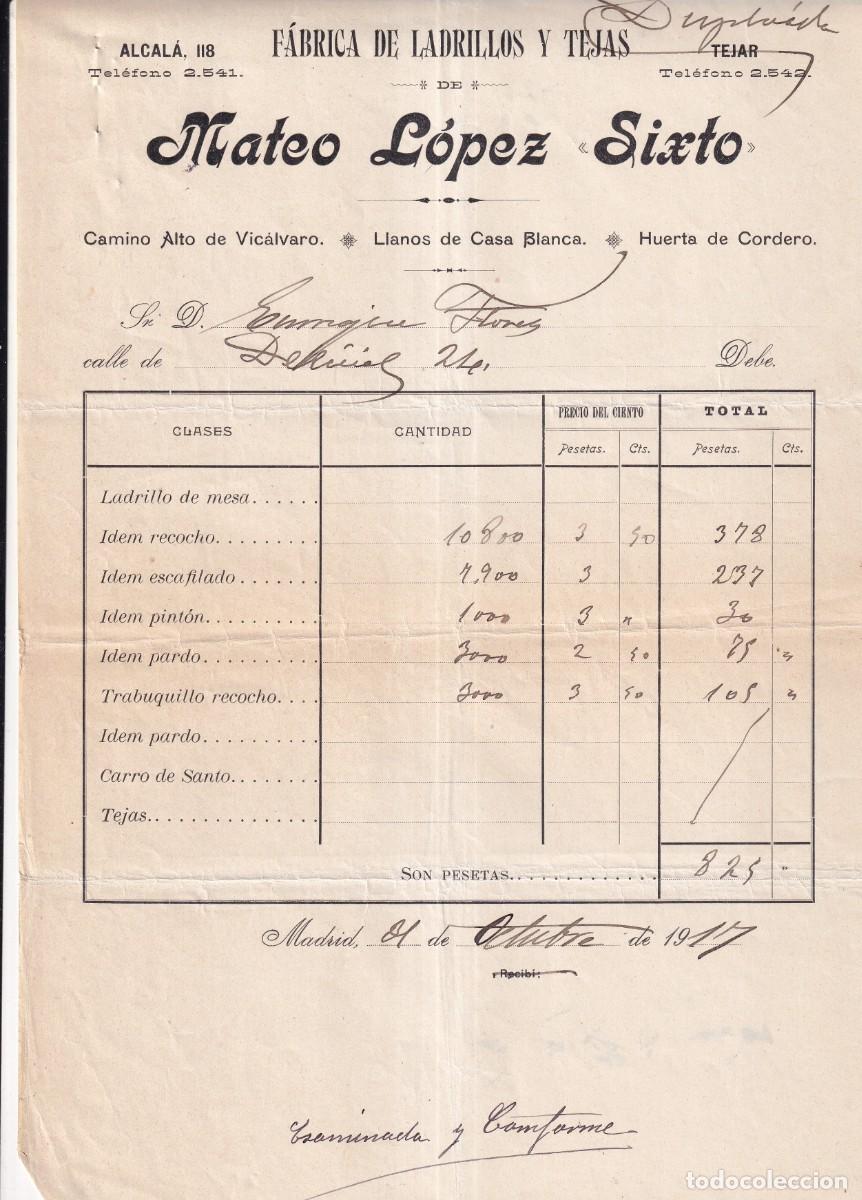 Duplicada
ALCALÁ, 118 FÁBRICA DE LADRILLOS Y TEJAS TEJAR
Teléfono 2.541. DE Teléfono 2.542.
Mateo López «Sixto»
Camino Alto de Vicálvaro. Llanos de Casa Blanca. Huerta de Cordero.
Sr. D. Enrique Flores
calle de 24, Debe.
CLASES CANTIDAD PRECIO DEL CIENTO TOTAL
Pesetas. Cts. Pesetas. Cts.
Ladrillo de mesa......
Idem recocho......... 10800 3 50 378
Idem escafilado....... 7,900 3 237
Idem pintón........... 1000 3 " 30
Idem pardo........... 3000 2 50 75 "
Trabuquillo recocho.... 3000 3 50 105 "
Idem pardo...........
Carro de Santo........
Tejas................
SON PESETAS............. 825 "
Madrid, 31 de Octubre de 1917
Recibí:
Esaminada y Comforme
todocoleccion